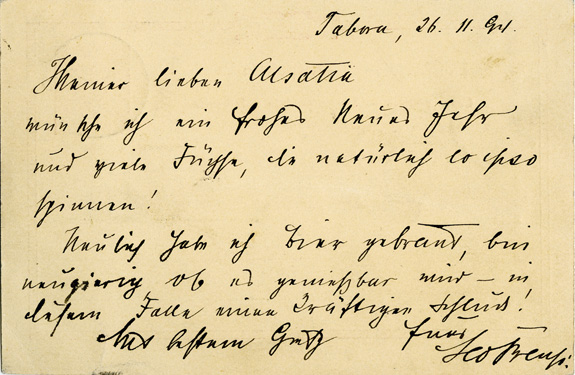 Tabora, 26. 11. 94.
Meiner lieben Alsatia
wünsche ich ein frohes Neues Jahr
und viele Füchse, die natürlich eo ipso
spinnen!
Neulich habe ich Bier gebraut, bin
neugierig, ob es genießbar wird – in
diesem Falle einen kräftigen Schluck!
Mit bestem Gruß Euer
Leo